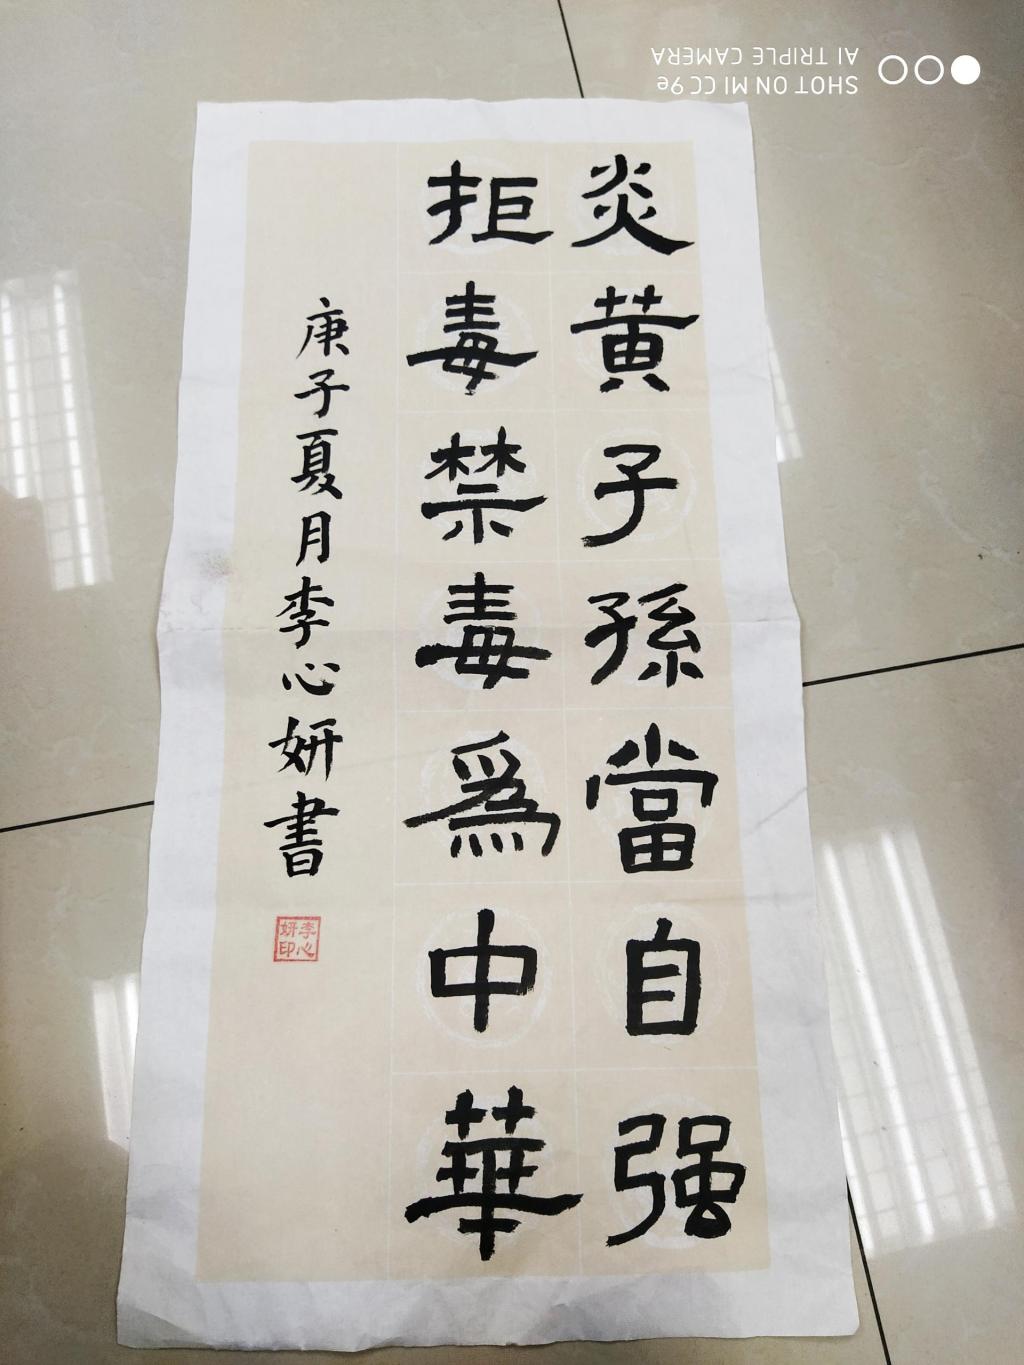 炎黄子孫當自强
拒毒禁毒爲中華
庚子夏月李心妍書
李心妍印
SHOT ON MI CC 9e
AI TRIPLE CAMERA